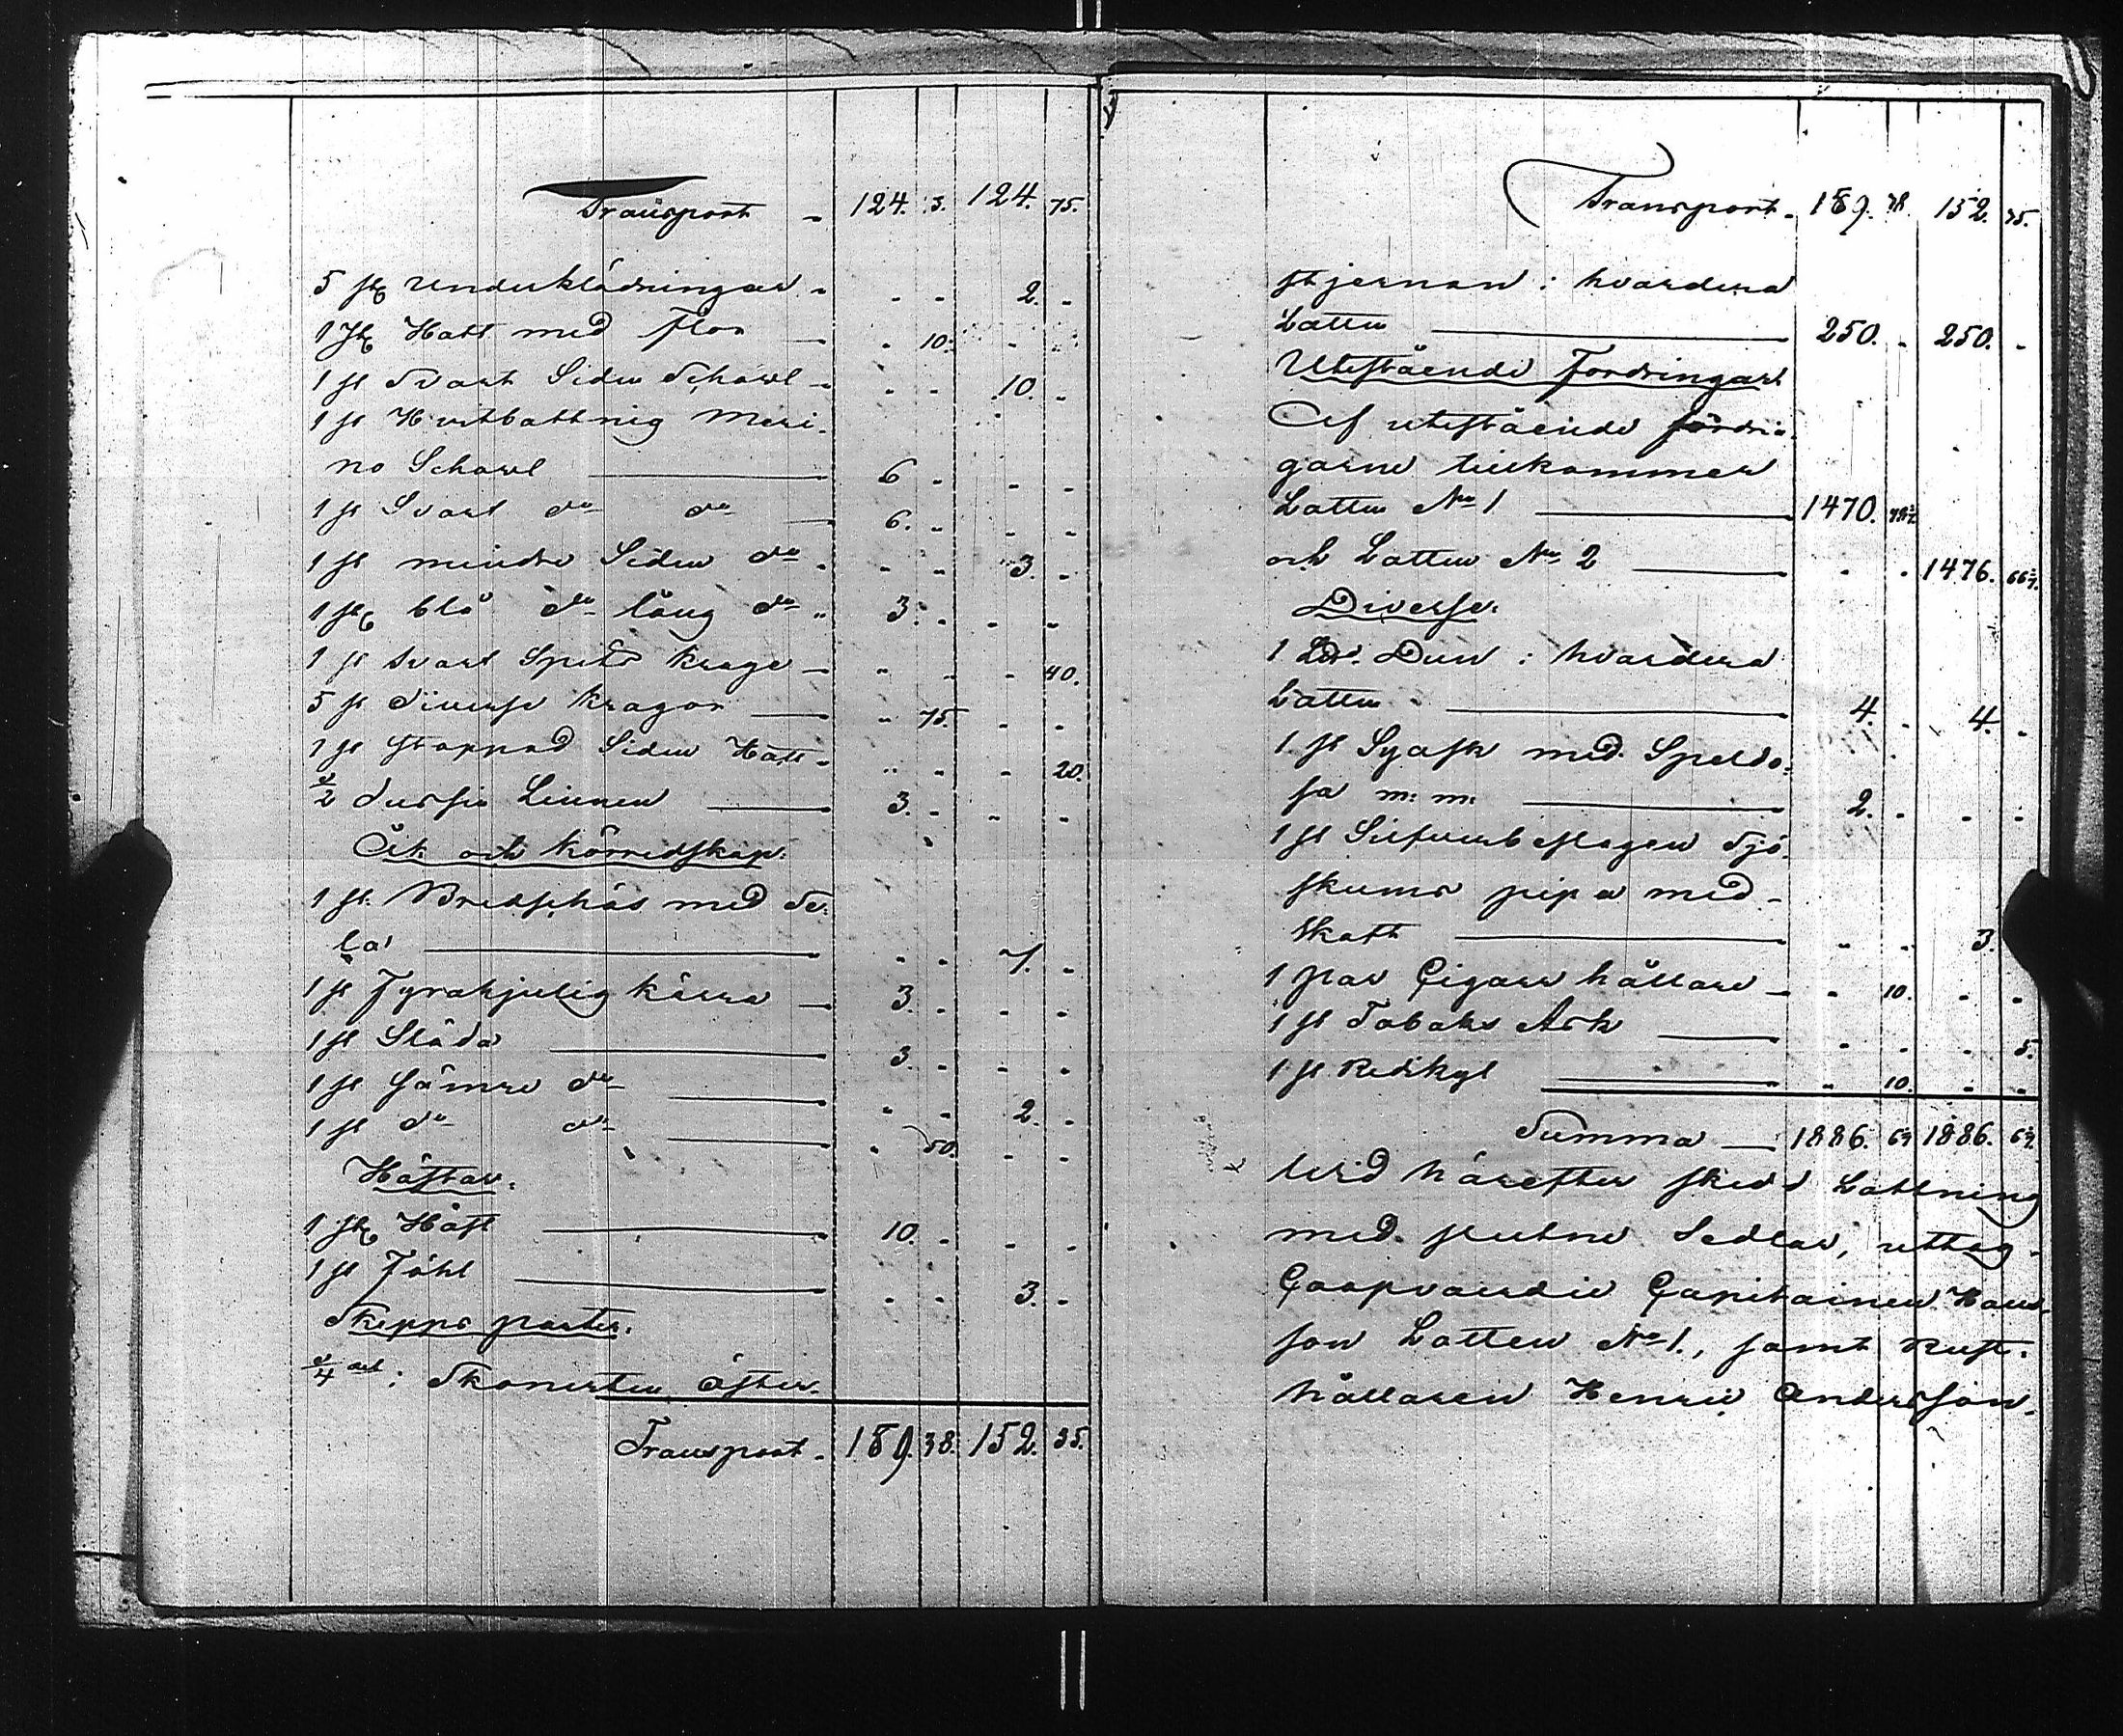 Transport - 124. 3. 124. 75.
5 st Underklädningar - - - 2. -
1 st Hatt med flor - . 10. - -
1 st Svart Siden Schawl - - - 10. -
1 st Hvitbottnig Meri-
no Schawl - 6 - - -
1 st Svart do do - 6. - - -
1 st mindre Siden do - - - 3. -
1 st blå do lång do - 3. - - -
1 st svart Spets krage - - - - 40.
5 st diverse kragar - - 75. - -
1 st stoppad Siden Hatt - - - - 20.
1/2 dussin Linnen - 3. - - -
Åk och körredskap:
1 st. Bredschäs med Se-
la - - - 7. -
1 st Fyrahjulig kärra - 3. - - -
1 st Släda - 3. - - -
1 st sämre do - - - 2. -
1 st do do - . 50. - -
Hästar.
1 st Häst - 10. - - -
1 st Föhl - - - 3. -
Skepps parter.
1/4 del i Skonerten Öster-
Transport - 189. 38. 152. 35.
Transport - 189. 38. 152. 35.
stjernan i hvardera
Lotten - 250. - 250. -
Utestående Fordringar
Af utestående fordrin-
garne tillkommer
Lotten No 1 - 1470.
och Lotten No 2 - . . 1476.
Diverse.
1 Dun i hvardera
Lotten - 4. - 4. -
1 st Syask med Speldo-
sa m: m: - 2. - - -
1 st Silfverbeslagen Sjö-
skums pipa med
Skaft - - - 3.
1 par Cigarr hållare - - 10. - -
1 st Tobaks Ask - - - - 5.
1 st Redikyl - - 10. - -
Summa - 1886. 1886.
Wid härefter skedd Lottning
med slutne Sedlar, uttog
Coopvaerdie Capitainen Hans-
son Lotten No 1., samt Rust-
hållaren Henric Andersson